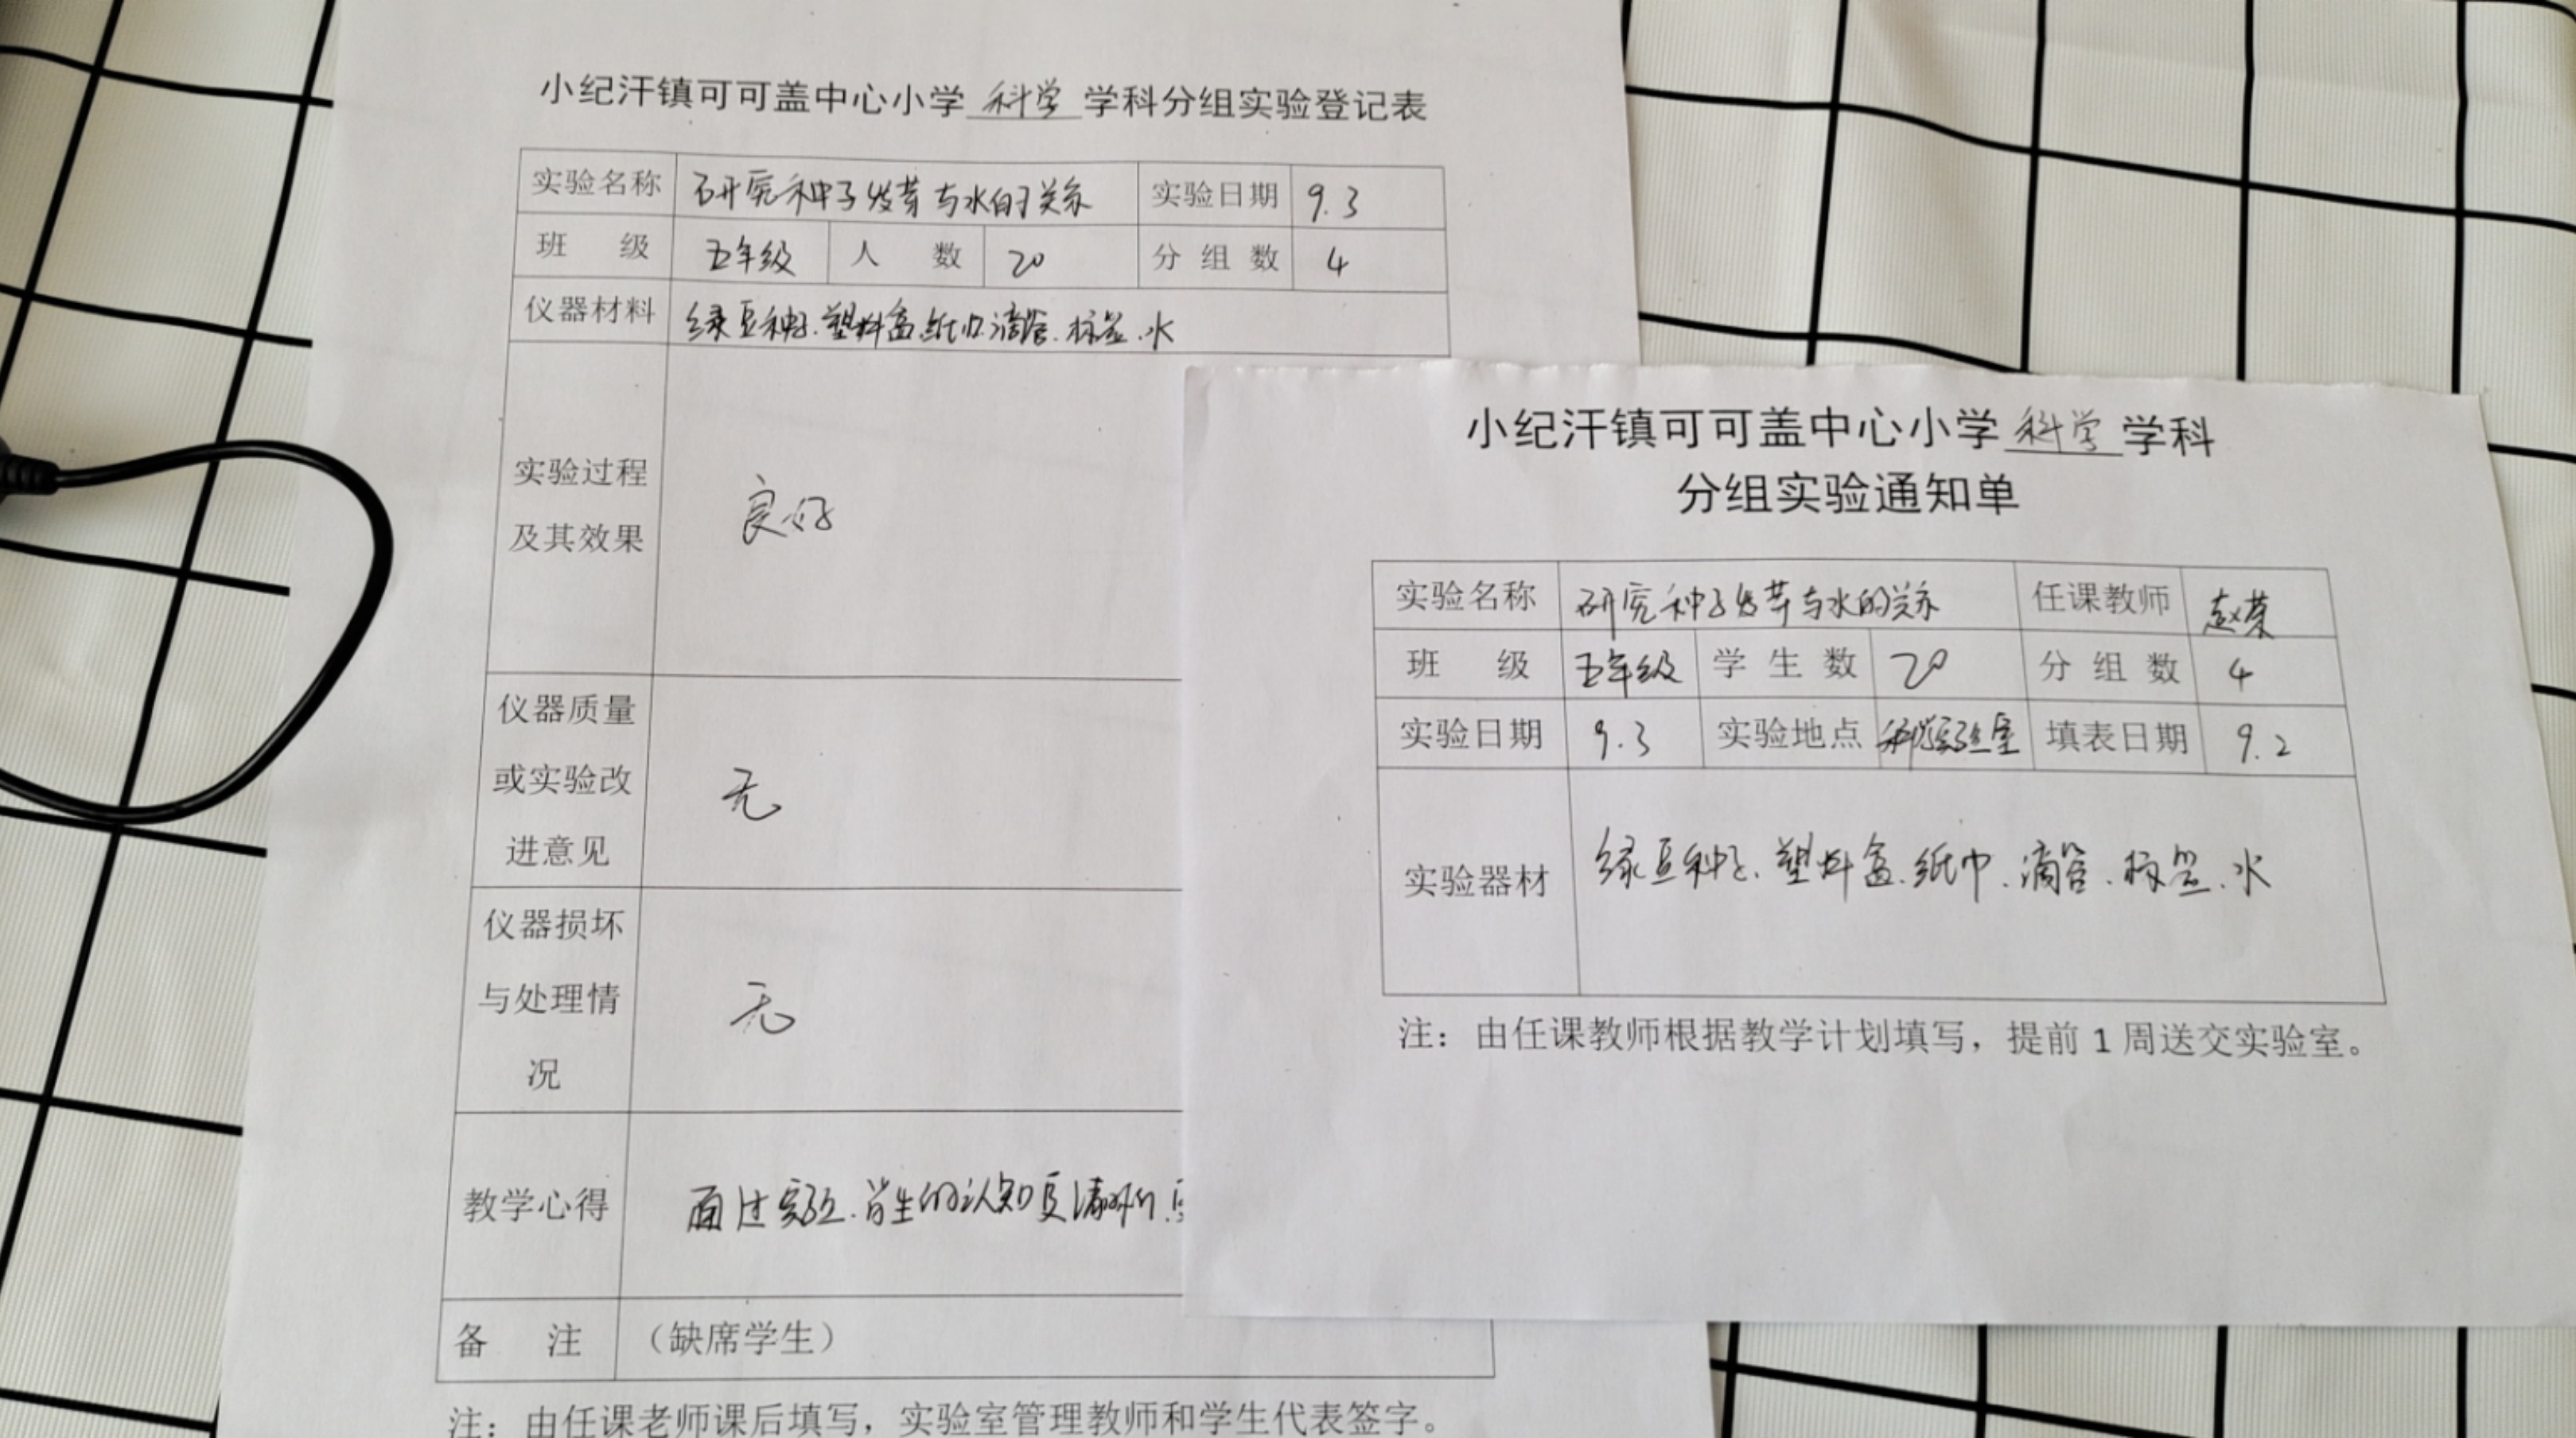 小纪汗镇可可盖中心小学 科学 学科分组实验登记表
实验名称 研究种子发芽与水的关系 实验日期 9.3
班 级 五年级 人 数 20 分组数 4
仪器材料 绿豆种子、塑料盒、纸巾、滴管、标签、水
实验过程
及其效果
良好
仪器质量
或实验改
进意见
无
仪器损坏
与处理情
况
无
教学心得 通过实验、学生的认知更清晰、
备 注 （缺席学生）
注：由任课老师课后填写，实验室管理教师和学生代表签字。
小纪汗镇可可盖中心小学 科学 学科
分组实验通知单
实验名称 研究种子发芽与水的关系 任课教师 赵荣
班 级 五年级 学生数 20 分组数 4
实验日期 9.3 实验地点 科学实验室 填表日期 9.2
实验器材 绿豆种子、塑料盒、纸巾、滴管、标签、水
注：由任课教师根据教学计划填写，提前1周送交实验室。